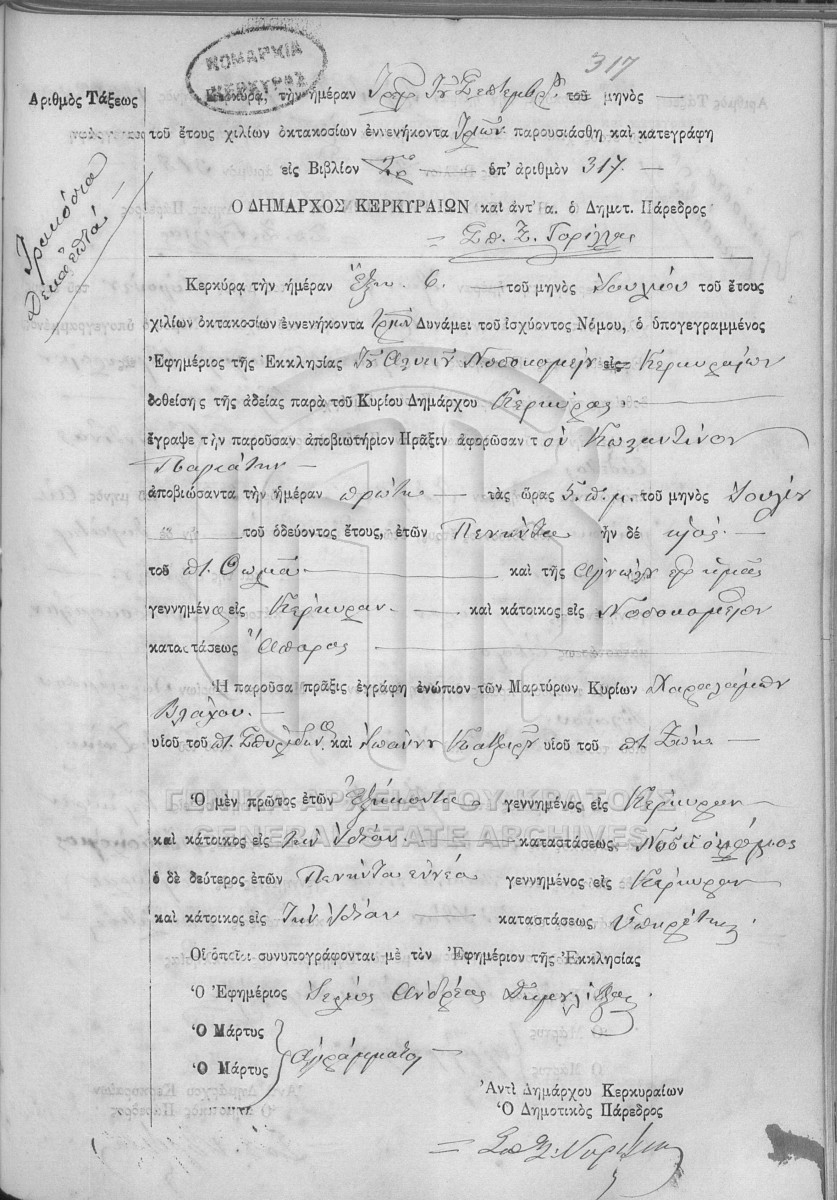 ΝΟΜΑΡΧΙΑ
ΚΕΡΚΥΡΑΣ
317
Ἀριθμὸς Τάξεως
Τρακόσια
Δεκαεπτά
Κερκύρα, τὴν ἡμέραν Σεπτεμβρ τοῦ μηνὸς
τοῦ ἔτους χιλίων ὀκτακοσίων ἐννενήκοντα Τριῶν παρουσιάσθη καὶ κατεγράφη
εἰς Βιβλίον ὑπ' ἀριθμὸν 317.
Ο ΔΗΜΑΡΧΟΣ ΚΕΡΚΥΡΑΙΩΝ καὶ ἀντ' α. ὁ Δημοτ. Πάρεδρος
Σπ.
Κερκύρα τὴν ἡμέραν Ἕξη 6. τοῦ μηνὸς Ἰουλίου τοῦ ἔτους
χιλίων ὀκτακοσίων ἐννενήκοντα Τριῶν Δυνάμει τοῦ ἰσχύοντος Νόμου, ὁ ὑπογεγραμμένος
Ἐφημέριος τῆς Ἐκκλησίας Νοσοκομείου εἰς Κερκυραίων
δοθείσης τῆς ἀδείας παρὰ τοῦ Κυρίου Δημάρχου Κερκύρας
ἔγραψε τὴν παροῦσαν ἀποβιωτήριον Πρᾶξιν ἀφορῶσαν τ ὸν Κωσταντῖνον
ἀποβιώσαντα τὴν ἡμέραν πρώτη τὰς ὥρας 5. π. μ. τοῦ μηνὸς Ἰουλίου
τοῦ ὁδεύοντος ἔτους, ἐτῶν Πενήντα ἦν δὲ υἱὸς
τοῦ π. Θωμᾶ καὶ τῆς
γεννημένος εἰς Κέρκυραν καὶ κάτοικος εἰς Νοσοκομεῖον
καταστάσεως Ἄπορος
Ἡ παροῦσα πρᾶξις ἐγράφη ἐνώπιον τῶν Μαρτύρων Κυρίων Χαραλάμπου
Βλάχου.
υἱοῦ τοῦ π. Σπυρίδωνος καὶ Ἰωάννου υἱοῦ τοῦ π.
Ὁ μὲν πρῶτος ἐτῶν Ἑξήκοντα γεννημένος εἰς Κέρκυραν
ΓΕΝΙΚΑ ΑΡΧΕΙΑ ΤΟΥ ΚΡΑΤΟΥΣ
GENERAL STATE ARCHIVES
καὶ κάτοικος εἰς τὴν Ἰδίαν καταστάσεως Νοσοκόμος
ὁ δὲ δεύτερος ἐτῶν Πενήντα εννέα γεννημένος εἰς Κέρκυραν
καὶ κάτοικος εἰς τὴν Ἰδίαν καταστάσεως Ὑπηρέτης
Οἱ ὁποῖοι συνυπογράφονται μὲ τὸν Ἐφημέριον τῆς Ἐκκλησίας
Ὁ Ἐφημέριος Ἱερεὺς Ἀνδρέας
Ὁ Μάρτυς
Ὁ Μάρτυς Ἀγράμματοι
Ἀντὶ Δημάρχου Κερκυραίων
Ὁ Δημοτικὸς Πάρεδρος
Σπ.